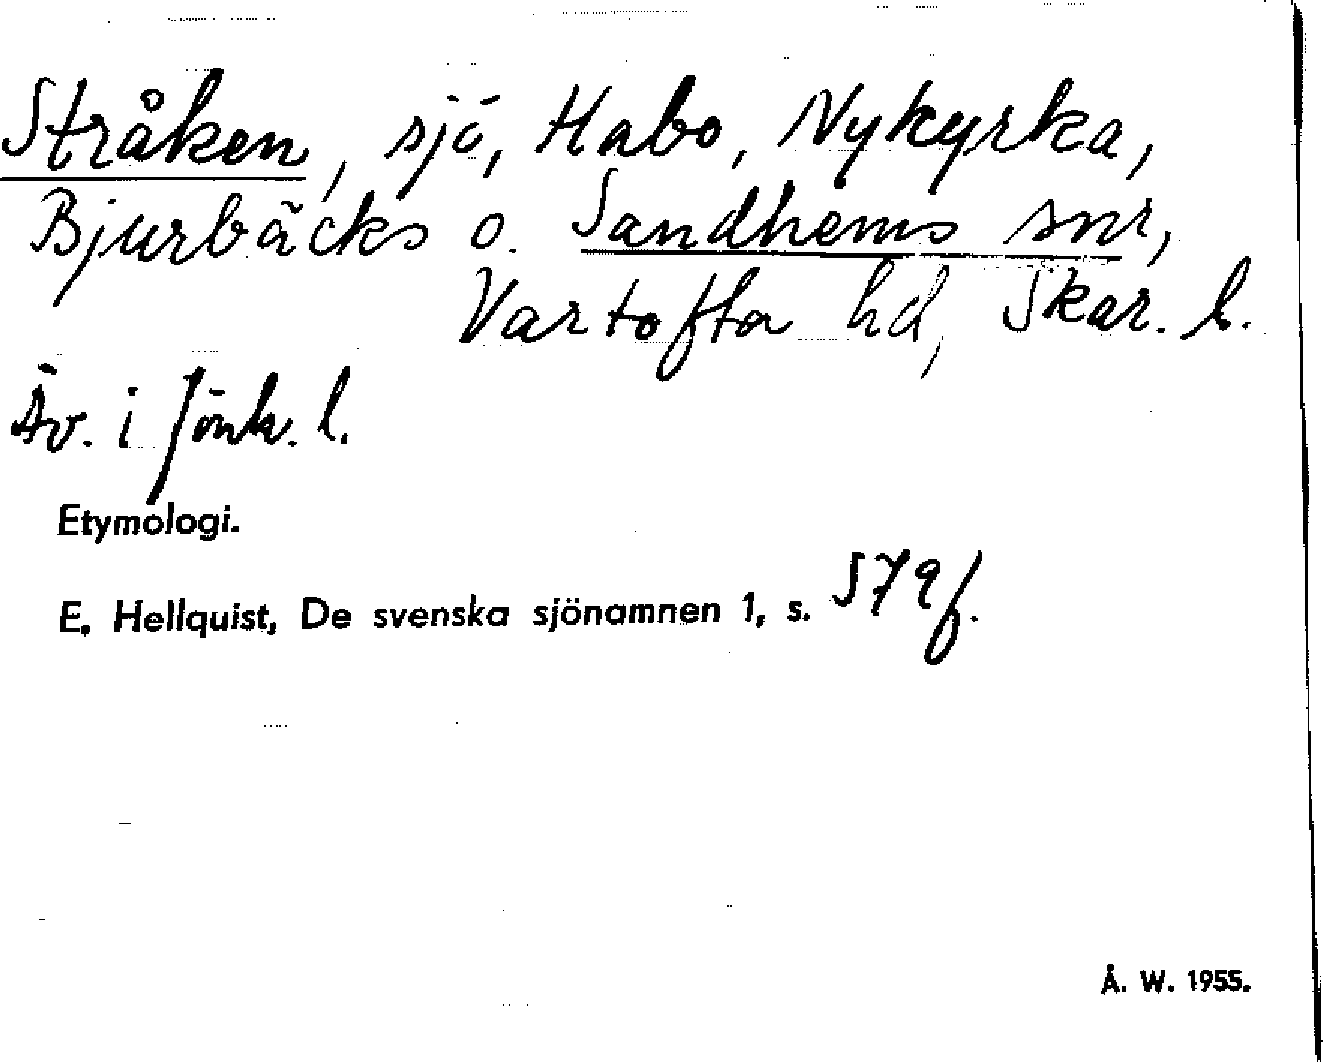 Stråken, sjö, Habo, Nykyrka,
Bjurbäcks o. Sandhems snr,
Vartofta hd, Skar. l.
Äv. i Jönk. l.
Etymologi.
E. Hellquist, De svenska sjönamnen 1, s. 579 f.
Å. W. 1955.